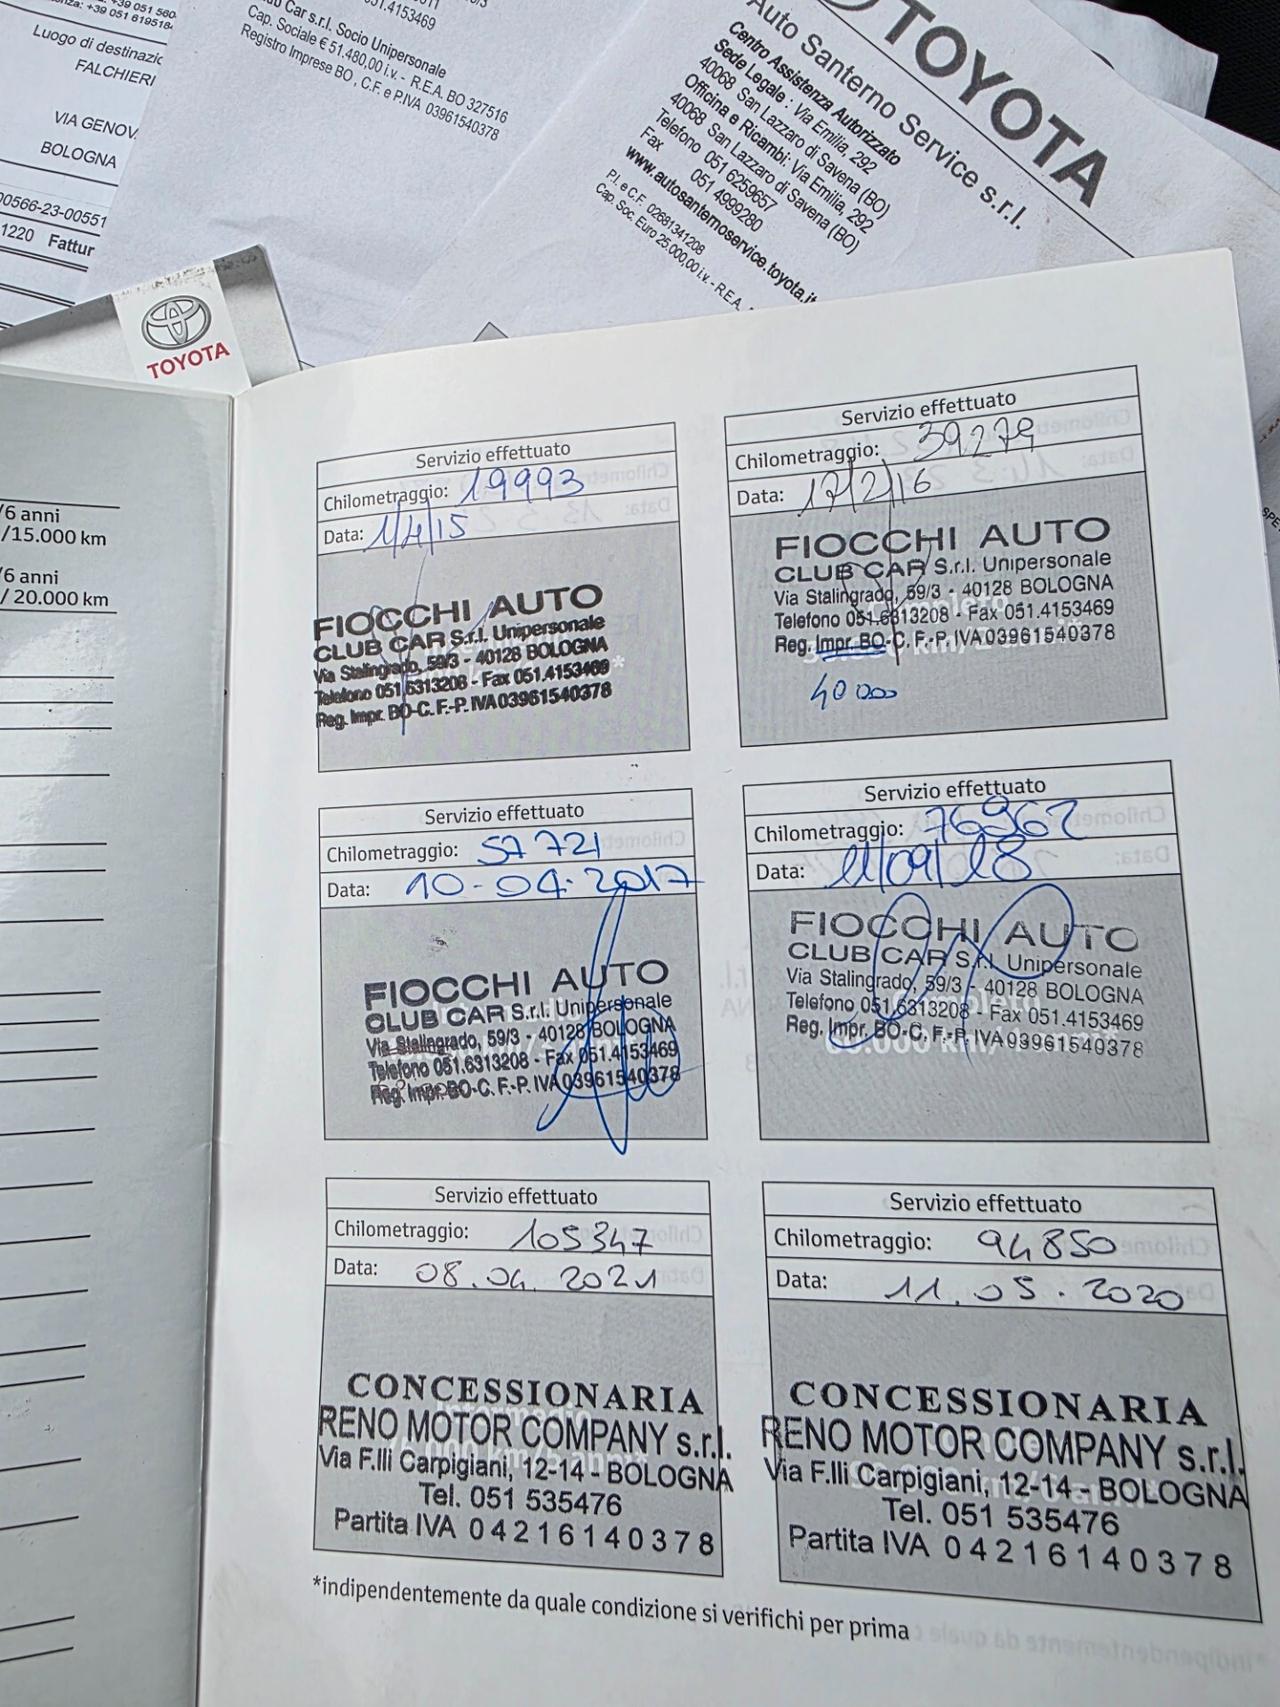 Luogo di destinazio
FALCHIERI
VIA GENOV
BOLOGNA
00566-23-00551
1220 Fattur
Car s.r.l. Socio Unipersonale
Cap. Sociale € 51.480,00 i.v. - R.E.A. BO 327516
Registro Imprese BO , C.F. e P.IVA 03961540378
TOYOTA
Auto Santerno Service s.r.l.
Centro Assistenza Autorizzato
Sede Legale : Via Emilia, 292
40068 San Lazzaro di Savena (BO)
Officina e Ricambi: Via Emilia, 292
40068 San Lazzaro di Savena (BO)
Telefono 051 6259657
Fax 051 4999280
www.autosanternoservice.toyota.it
P.I. e C.F. 02681341208
Cap. Soc. Euro 25.000,00 i.v. - R.E.A.
TOYOTA
/6 anni
/15.000 km
/6 anni
/ 20.000 km
Servizio effettuato
Chilometraggio: 19993
Data: 1/4/15
FIOCCHI AUTO
CLUB CAR S.r.l. Unipersonale
Via Stalingrado, 59/3 - 40128 BOLOGNA
Telefono 051.6313208 - Fax 051.4153469
Reg. Impr. BO-C. F.-P. IVA 03961540378
Servizio effettuato
Chilometraggio: 39279
Data: 17/2/16
FIOCCHI AUTO
CLUB CAR S.r.l. Unipersonale
Via Stalingrado, 59/3 - 40128 BOLOGNA
Telefono 051.6313208 - Fax 051.4153469
Reg. Impr. BO-C. F.-P. IVA 03961540378
40000
Servizio effettuato
Chilometraggio: 57721
Data: 10-04-2017
FIOCCHI AUTO
CLUB CAR S.r.l. Unipersonale
Via Stalingrado, 59/3 - 40128 BOLOGNA
Telefono 051.6313208 - Fax 051.4153469
Reg. Impr. BO-C. F.-P. IVA 03961540378
Servizio effettuato
Chilometraggio: 76962
Data: 11/09/18
FIOCCHI AUTO
CLUB CAR S.r.l. Unipersonale
Via Stalingrado, 59/3 - 40128 BOLOGNA
Telefono 051.6313208 - Fax 051.4153469
Reg. Impr. BO-C. F.-P. IVA 03961540378
Servizio effettuato
Chilometraggio: 105347
Data: 08.04.2021
CONCESSIONARIA
RENO MOTOR COMPANY s.r.l.
Via F.lli Carpigiani, 12-14 - BOLOGNA
Tel. 051 535476
Partita IVA 04216140378
Servizio effettuato
Chilometraggio: 94850
Data: 11.05.2020
CONCESSIONARIA
RENO MOTOR COMPANY s.r.l.
Via F.lli Carpigiani, 12-14 - BOLOGNA
Tel. 051 535476
Partita IVA 04216140378
*indipendentemente da quale condizione si verifichi per prima